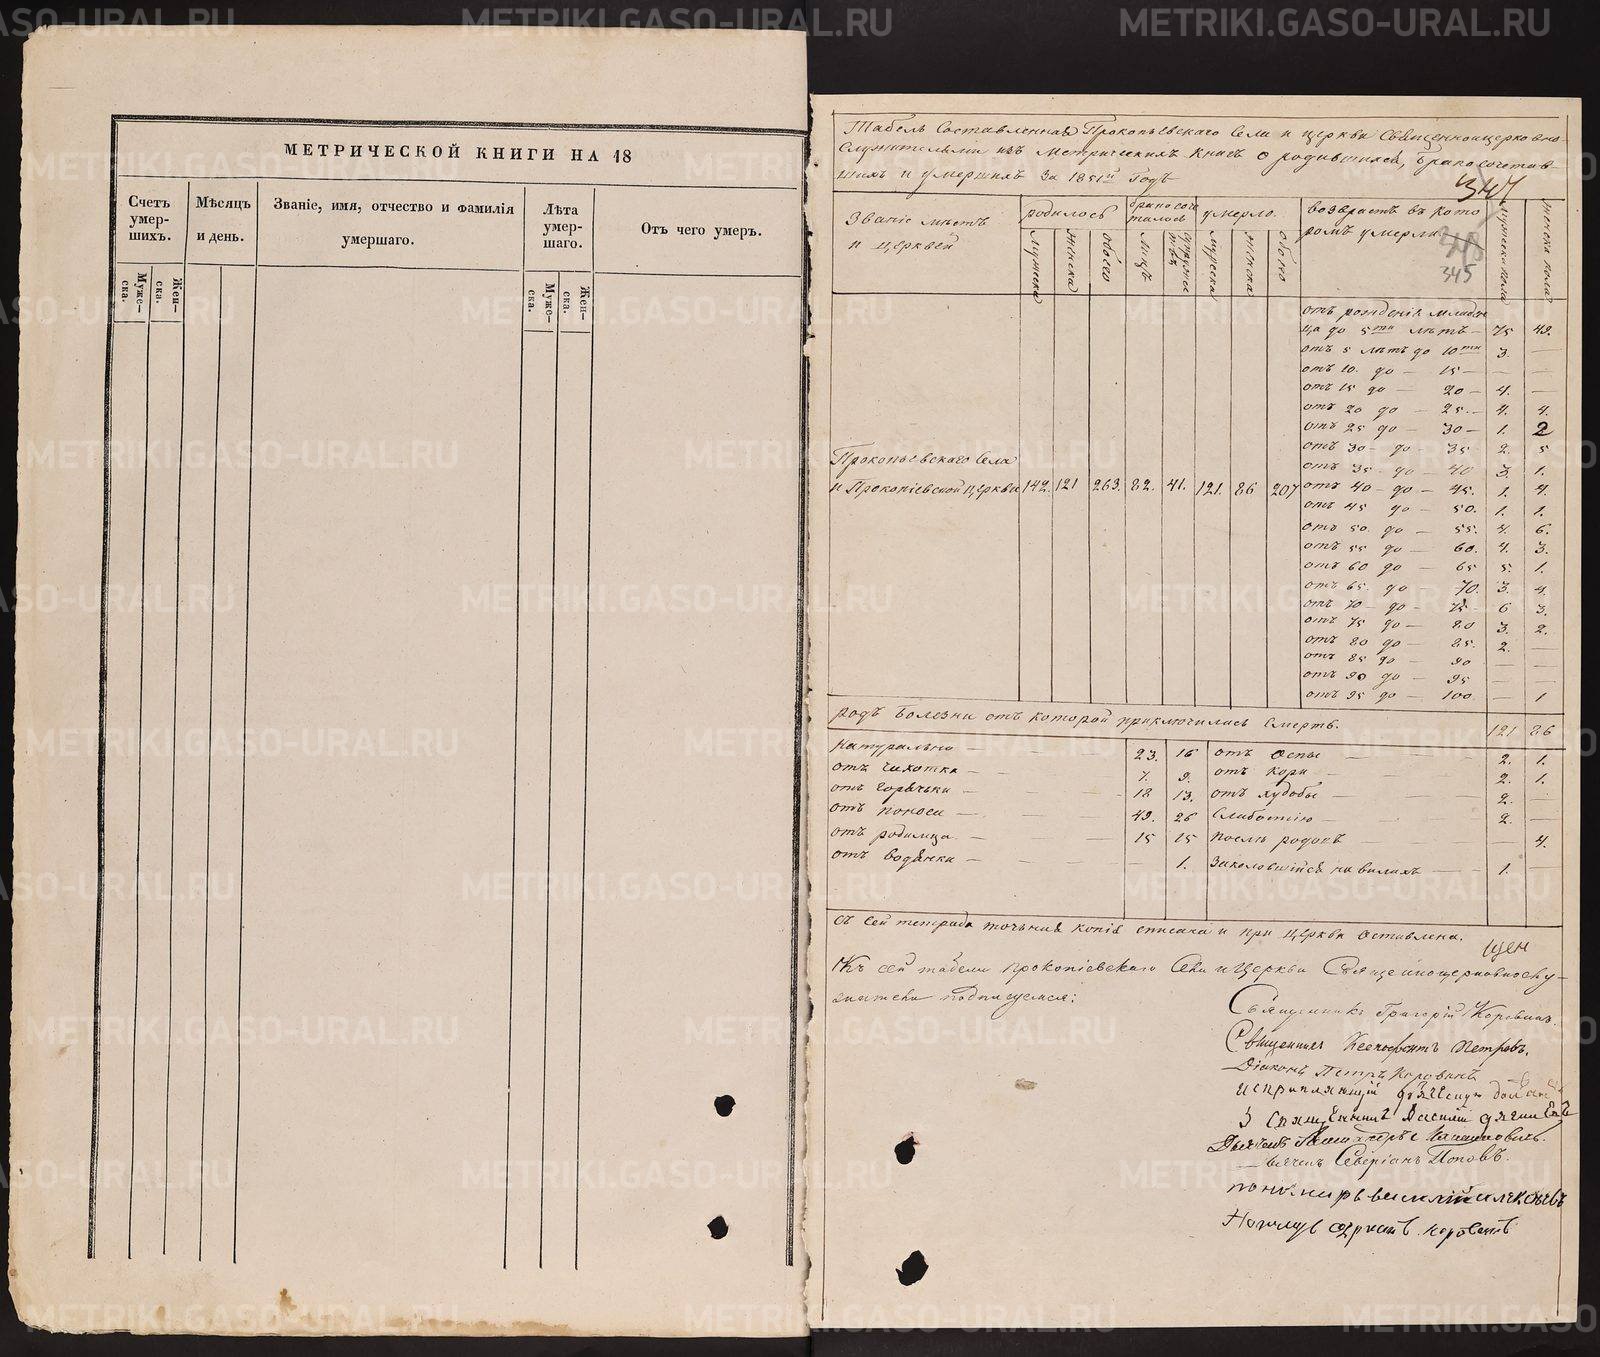 МЕТРИЧЕСКОЙ КНИГИ НА 18
Счетъ умер-
шихъ.
Мѣсяцъ
и день.
Званіе, имя, отчество и фамилія
умершаго.
Лѣта
умер-
шаго.
Отъ чего умеръ.
Муже-
ска.
Жен-
ска.
Муже-
ска.
Жен-
ска.
Табель Составленная Прокопьевскаго Села и церкви Священноцерковно-
Служительми изъ Метрическихъ Книгъ о родившихся, Бракосочетав-
шихъ и умершихъ За 1851й Годъ
347
Званіе мѣстъ
и церквей
родилось
мужеска
женска
обоего
бракосоче
талось
лицъ
супружествъ
умерло.
мужеска
женска
обоего
возврастъ въ кото
ромъ умерли
345
мужеска пола
женска пола
Прокопьевскаго Села
и Прокопіевской церкви 142. 121 263. 82. 41. 121. 86 207
отъ рожденія младен
ца до 5ти лѣтъ — 75 49.
отъ 5 лѣтъ до 10ти 3. —
отъ 10. до — 15 — — —
отъ 15 до — 20 — 4. —
отъ 20 до — 25. — 4. 4.
отъ 25 до — 30 — 1. 2
отъ 30 — до — 35 2. 5
отъ 35 до — 40 3. 1.
отъ 40 — до — 45. 1. 4.
отъ 45 до — 50. 1. 1.
отъ 50. до — 55. 4. 6.
отъ 55 до — 60. 4. 3.
отъ 60 до — 65 5. 1.
отъ 65. до 70. 3. 4.
отъ 70 — до — 75 — 6 3.
отъ 75 до — 80 3. 2.
отъ 80 до — 85. 2. —
отъ 85 до — 90 — —
отъ 90 до — 95 — —
отъ 95 до — 100 — 1
родъ болезни отъ которой приключилась Смерть. 121 86
Натурально — 23. 16 отъ Оспы — 2. 1.
отъ чихотки — 7. 9. отъ Кори — 2. 1.
отъ горячьки — 18 13. отъ худобы — 2. —
отъ поноса — 49. 26 Слабостію — 2. —
отъ родимца — 15 15 После родовъ — 4.
отъ водянки — 1. Заколовшійся на вилахъ — 1. —
съ сей тетрада точьная копія списана и при церкви Оставлена.
Къ сей табели Прокопіевскаго Села и Церкви Священноцерковнослу-
жители подписуемся:
Священникъ Григорій Коровинъ.
Священникъ Ксенофонтъ Петровъ.
Діаконъ Петръ Коровинъ
Северіанъ Поповъ.
METRIKI.GASO-URAL.RU